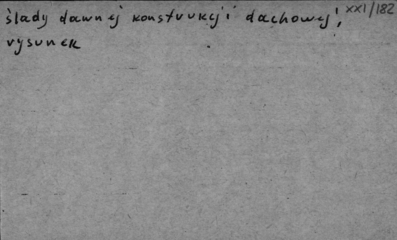 ślady dawnej konstrukcji dachowej, XXI/182
rysunek